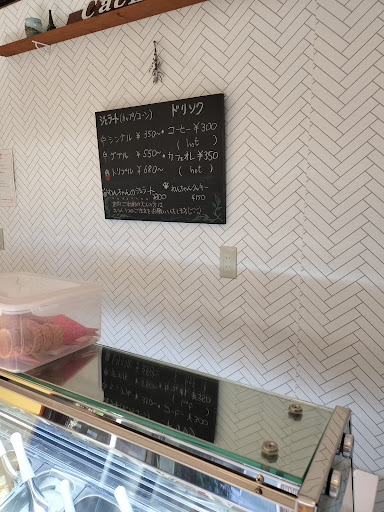 Caca
ジェラート(カップ/コーン) ドリンク
シングル ¥350〜 コーヒー ¥300
( hot )
ダブル ¥550〜 カフェオレ ¥350
トリプル ¥680〜 ( hot )
わんちゃんのジェラート わんちゃんクッキー
¥300 ¥150